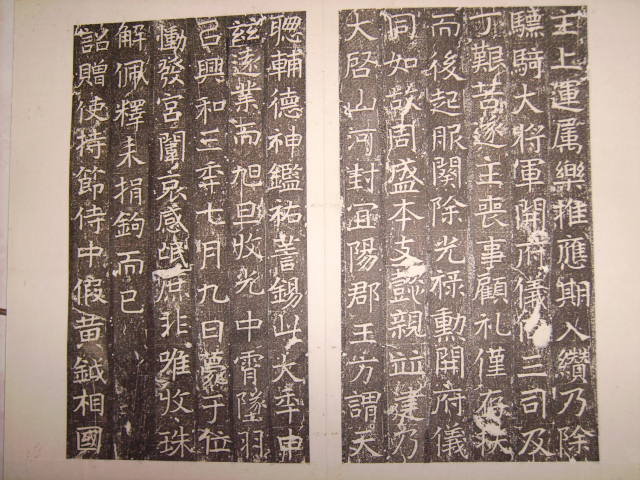 主上運屬樂推應期入纘乃除
驃騎大將軍開府儀同三司及
丁艱苦遂主喪事顧礼僅存扶
而後起服闋除光禄勳開府儀
同如故周盛本支懿親並建乃
大啓山河封宜陽郡王方謂天
聰輔德神鑑祐善錫此大秊申
兹遠業而旭旦收光中霄墜羽
呂興和三秊七月九日薨于位
慟發宮闈哀感氓庶非唯收珠
解佩釋耒捐鉤而已
詔贈使持節侍中假黄鉞相國